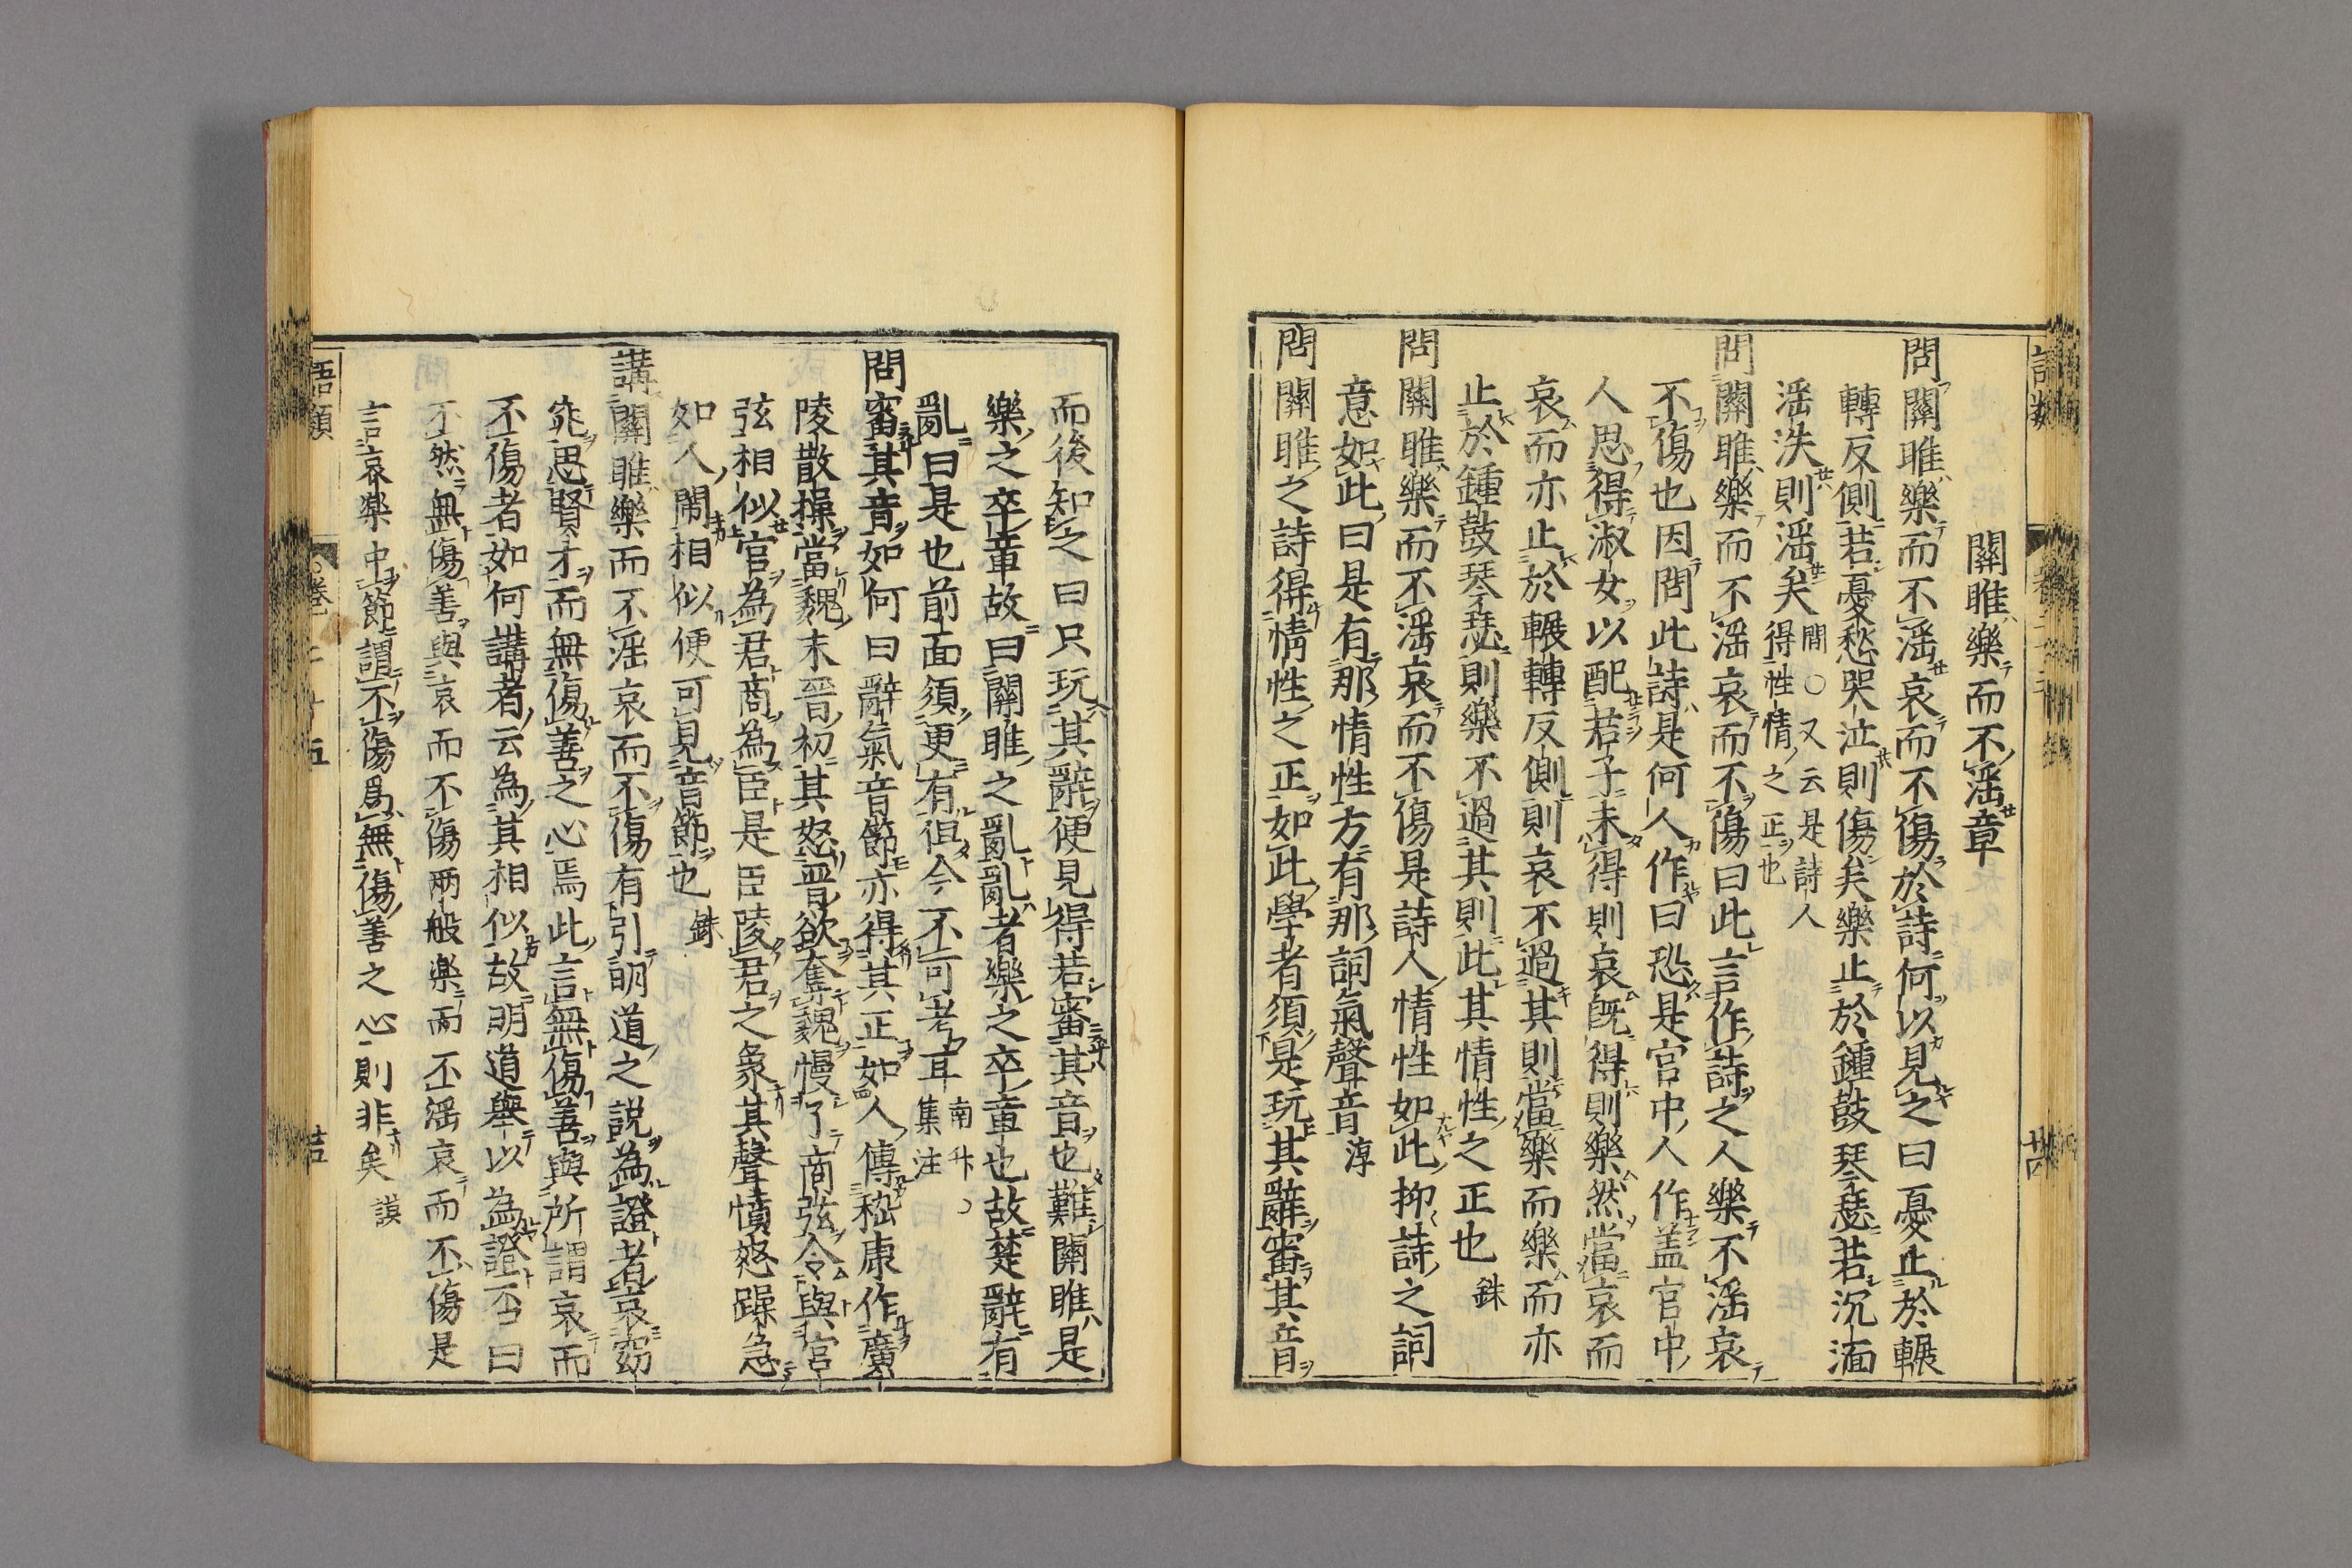 關雎樂而不滛章
問關雎樂而不滛哀而不傷於詩何以見之曰憂止於輾
轉反側若憂愁哭泣則傷矣樂止於鍾鼓琴瑟若沉湎
滛泆則滛矣 閒○又云是詩人得性情之正也
問關雎樂而不滛哀而不傷曰此言作詩之人樂不滛哀
不傷也因問此詩是何人作曰恐是宮中人作盖宮中
人思得淑女以配君子未得則哀既得則樂然當哀而
哀而亦止於輾轉反側則哀不過其則當樂而樂而亦
止於鍾鼓琴瑟則樂不過其則此其情性之正也 銖
問關雎樂而不滛哀而不傷是詩人情性如此抑詩之詞
意如此曰是有那情性方有那詞氣聲音 淳
問關雎之詩得情性之正如此學者須是玩其辭審其音
而後知之曰只玩其辭便見得若審其音也難關雎是
樂之卒章故曰關雎之亂亂者樂之卒章也故楚辭有
亂曰是也前面須更有但今不可考耳 南升 集注
問審其音如何曰辭氣音節亦得其正如人傳嵇康作廣
陵散操當魏末晉初其怒晉欲奪魏慢了商弦令與宮
弦相似宮為君商為臣是臣陵君之象其聲憤怒躁急
如人鬧相似便可見音節也 銖
講關雎樂而不滛哀而不傷有引明道之説為證者哀窈
窕思賢才而無傷善之心焉此言無傷善與所謂哀而
不傷者如何講者云為其相似故明道舉以為證不曰
不然無傷善與哀而不傷兩般楽而不滛哀而不傷是
言哀楽中節謂不傷爲無傷善之心則非矣 謨
語類
卷二十五